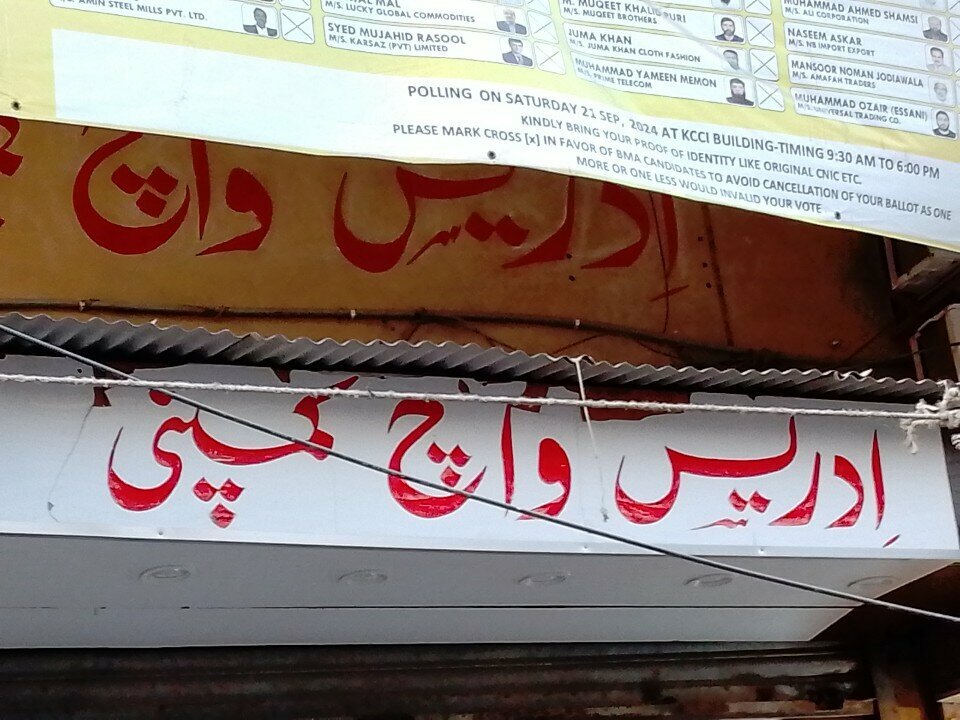 AMIN STEEL MILLS PVT. LTD.
M/S. LUCKY GLOBAL COMMODITIES
SYED MUJAHID RASOOL
M/S. KARSAZ (PVT) LIMITED
M/S. MUQEET BROTHERS
JUMA KHAN
M/S. JUMA KHAN CLOTH FASHION
MUHAMMAD YAMEEN MEMON
M/S. PRIME TELECOM
MUHAMMAD AHMED SHAMSI
M/S. ALI CORPORATION
NASEEM ASKAR
M/S. NB IMPORT EXPORT
MANSOOR NOMAN JODIAWALA
M/S. AMAFAH TRADERS
MUHAMMAD OZAIR (ESSANI)
M/S. UNIVERSAL TRADING CO.
POLLING ON SATURDAY 21 SEP, 2024 AT KCCI BUILDING-TIMING 9:30 AM TO 6:00 PM
KINDLY BRING YOUR PROOF OF IDENTITY LIKE ORIGINAL CNIC ETC.
PLEASE MARK CROSS [x] IN FAVOR OF BMA CANDIDATES TO AVOID CANCELLATION OF YOUR BALLOT AS ONE
MORE OR ONE LESS WOULD INVALID YOUR VOTE
اِدریس واچ
اِدریس واچ کمپنی